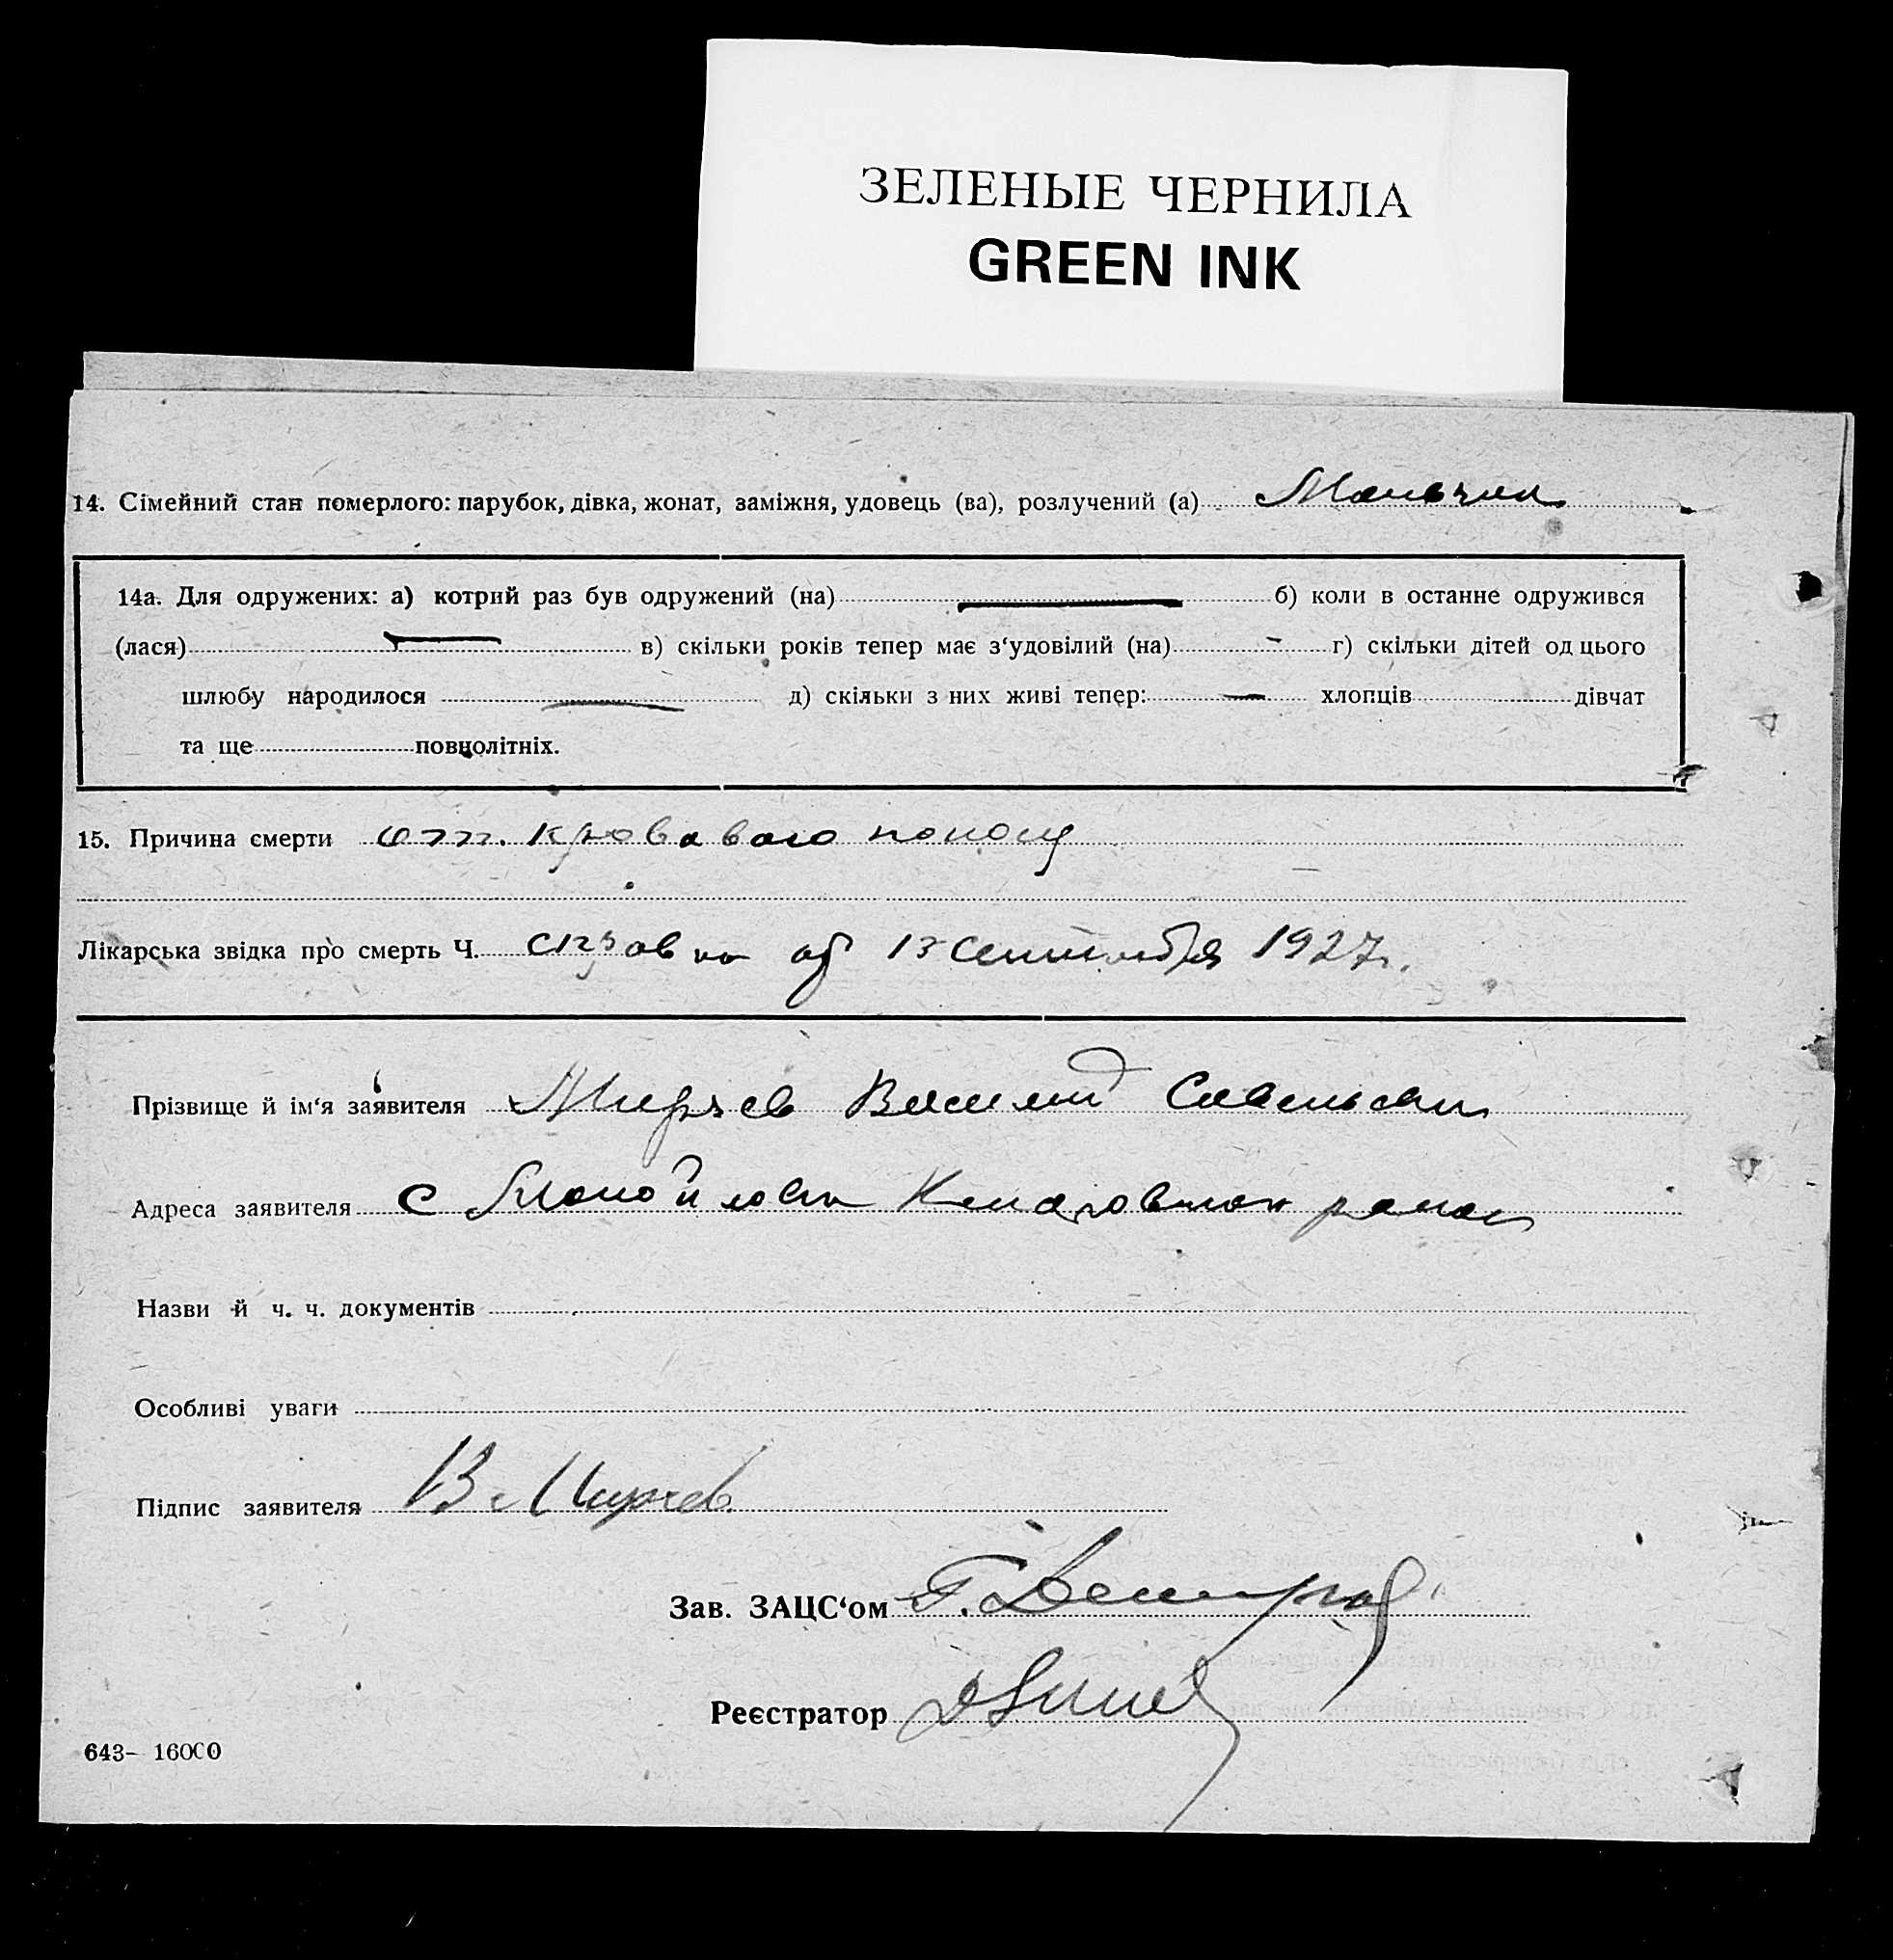 ЗЕЛЕНЫЕ ЧЕРНИЛА
GREEN INK
14. Сімейний стан померлого: парубок, дівка, жонат, заміжня, удовець (ва), розлучений (а) Мальчик
14а. Для одружених: а) котрий раз був одружений (на) б) коли в останне одружився
(лася) в) скільки років тепер має з‘удовілий (на) г) скільки дітей од цього
шлюбу народилося д) скільки з них живі тепер: хлопців дівчат
та ще повнолітніх.
15. Причина смерти от кровавого поносу
Лікарська звідка про смерть Ч. справка от 13 сентября 1927г.
Прізвище й ім‘я заявителя Василий Савельевич
Адреса заявителя с район
Назви й ч. ч. документів
Особливі уваги
Підпис заявителя В
Зав. ЗАЦС‘ом
Реєстратор
643- 16000